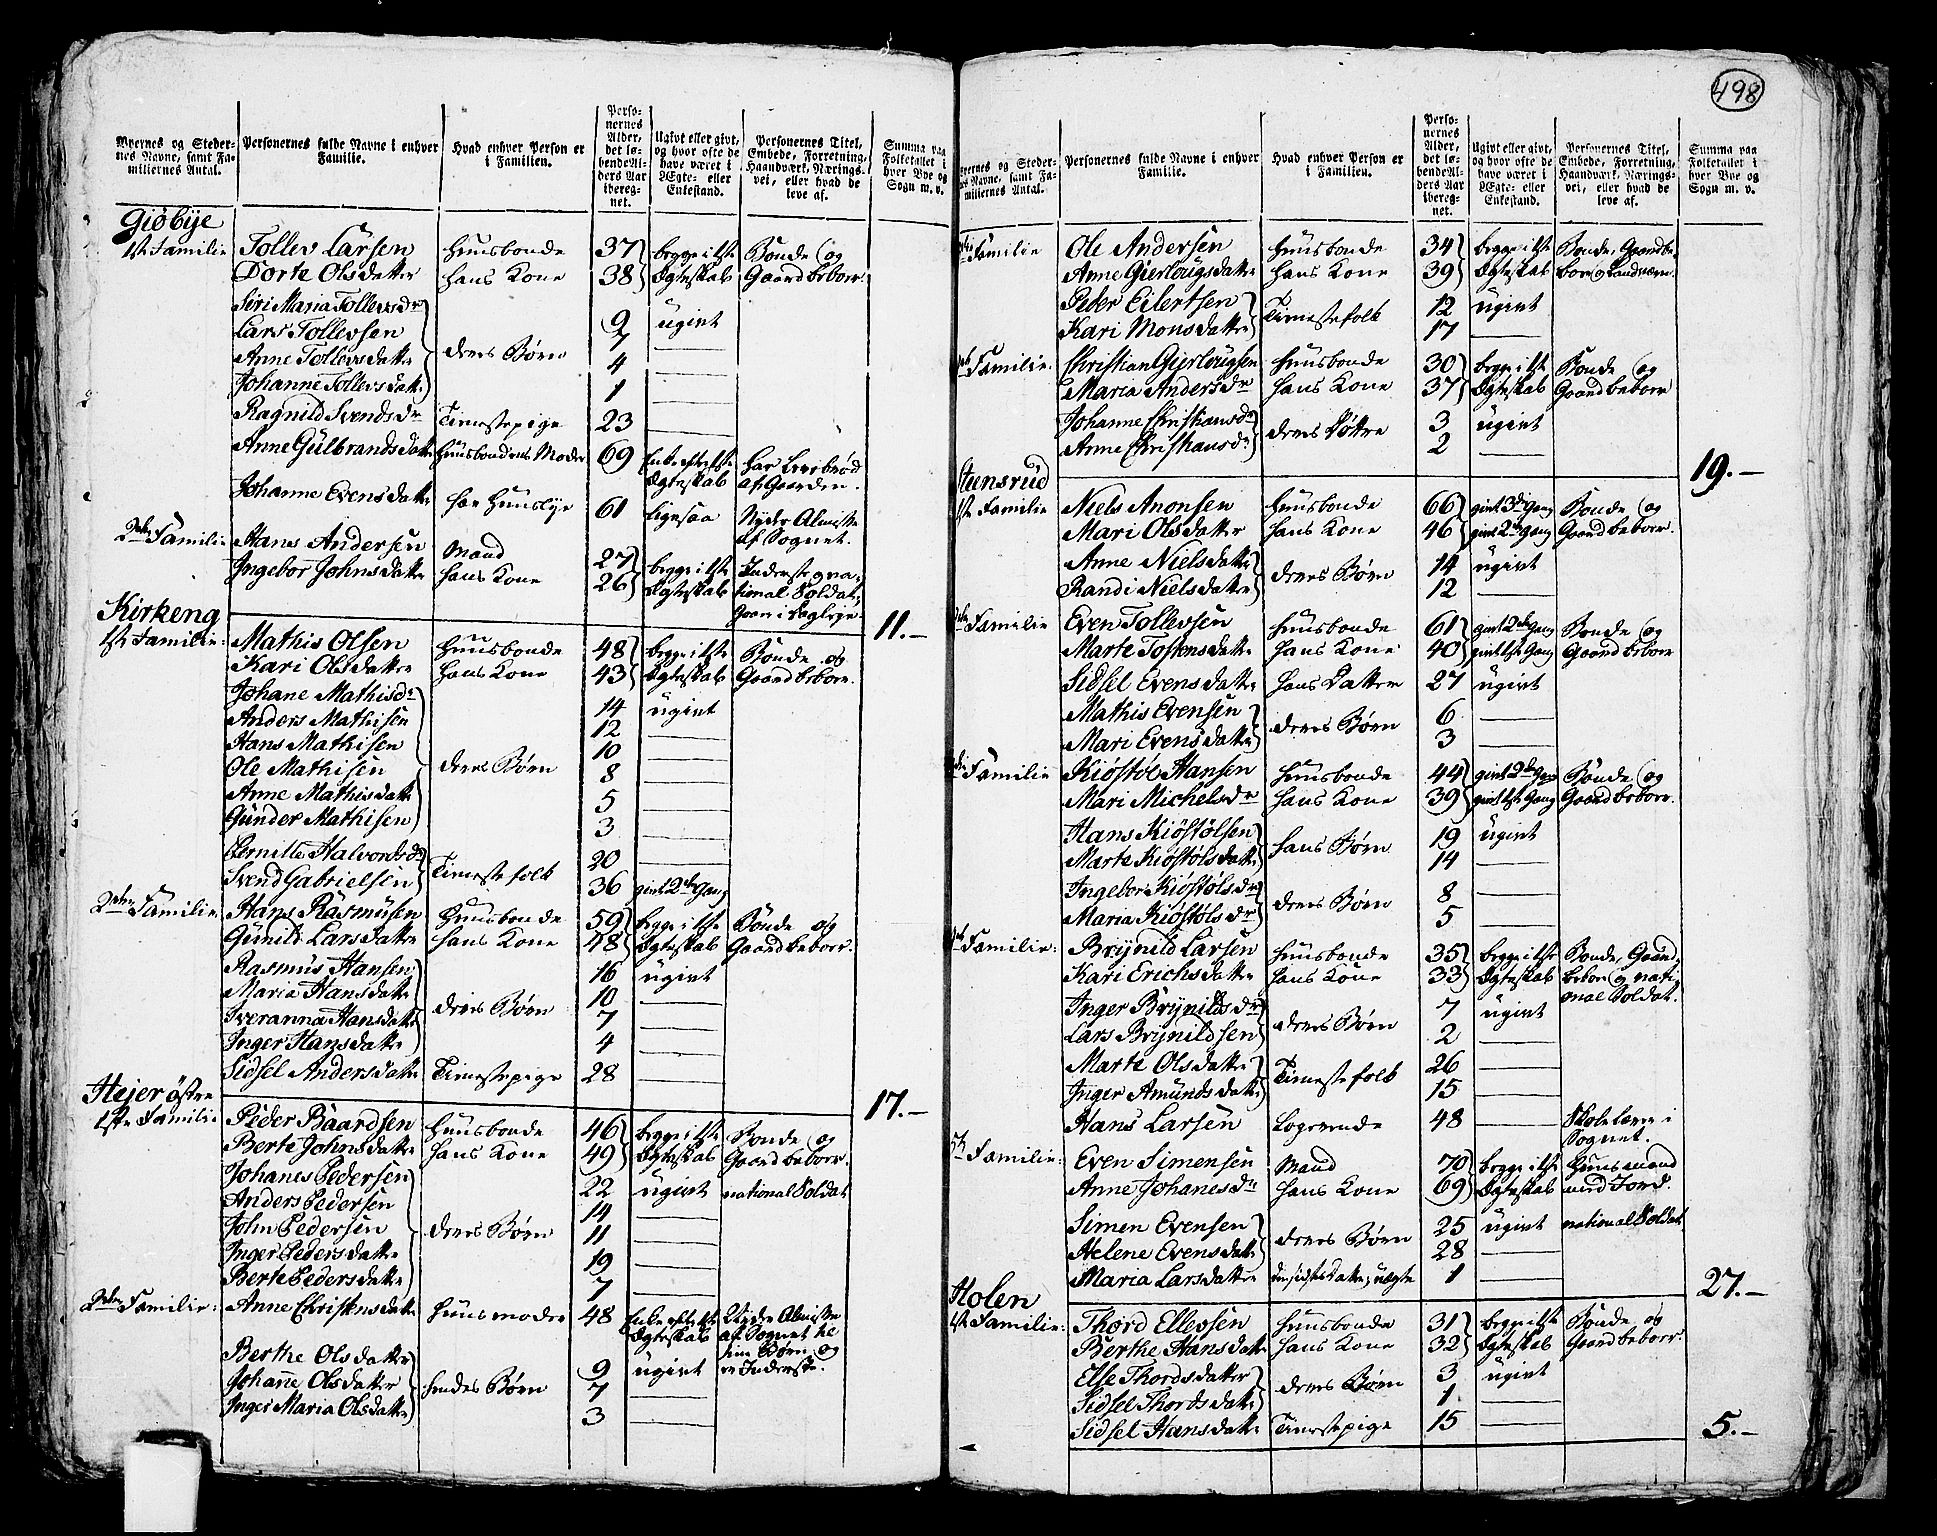 Byernes og Stedernes Navne, samt Familiernes Antal.
Personernes fulde Navne i enhver Familie.
Hvad enhver Person er i Familien.
Personernes Alder, det løbende Alders Aar iberegnet.
Ugivt eller givt, og hvor ofte de have været i Ægte- eller Enkestand.
Personernes Titel, Embede, Forretning, Haandværk, Næringsvei, eller hvad de leve af.
Summa paa Folketallet i hver Bye og Sogn m. v.
Giøbye
1ste Familie Tollev Larsen Huusbonde 37 begge i 1ste Bonde og
Dorte Olsdatter hans Kone 38 Ægteskab Gaardbeboer.
Siri Maria Tollevsdr 9 ugivt
Lars Tollevsen 7 —
Anne Tollevsdatter deres Børn 4 —
Johanne Tollevsdatter 1 —
Ragnild Svends dr Tienestepige 23 —
Anne Gulbrandsdatter Huusbondens Moder 69 Enke efter 1ste Ægteskab har Levebrød af Gaarden.
Johanne Evensdatter 61 Ligesaa Nyder Almisse af Sognet.
2den Familie Hans Andersen Mand 27 begge i 1ste
Ingebor Johnsdatter hans Kone 26 Ægteskab national Soldat
11.—
Kirkeng
1ste Familie: Mathis Olsen Huusbonde 48 begge i 1ste Bonde og
Kari Olsdatter hans Kone 43 Ægteskab Gaardbeboer.
Johane Mathisdr 14 ugivt
Anders Mathisen 12 —
Hans Mathisen 10 —
Ole Mathisen deres Børn 8 —
Anne Mathisdatter 5 —
Gunder Mathisen 3 —
Pernille Halvordsdr Tienestefolk 20 —
Svend Gabrielsen 36 givt 2den Gang
2den Familie Hans Rasmusen Huusbonde 59 begge i 1ste Bonde og
Gunild Larsdatter hans Kone 48 Ægteskab Gaardbeboer.
Rasmus Hansen 16 ugivt
Maria Hansdatter deres Børn 10 —
Sveranna Hansdatter 7 —
Inger Hansdatter 4 —
Sidsel Andersdatter Tienestepige 28 —
17.—
Hejer østre
1ste Familie Peder Baardsen Huusbonde 46 begge i 1ste Bonde og
Berte Johnsdatter hans Kone 49 Ægteskab Gaardbeboer.
Johanes Pedersen 22 ugivt national Soldat
Anders Pedersen 14 —
John Pedersen deres Børn 11 —
Inger Pedersdatter 19 —
Berte Pedersdatter 7 —
2den Familie: Anne Christensdatter Huusmoder 48 Enke efter 1ste Ægteskab Nyder Almisse af Sognet
Berthe Olsdatter 9 ugivt
Johanne Olsdatter hendes Børn 7 —
Inger Maria Olsdatter 3 —
498
Byernes og Stedernes Navne, samt Familiernes Antal.
Personernes fulde Navne i enhver Familie.
Hvad enhver Person er i Familien.
Personernes Alder, det løbende Alders Aar iberegnet.
Ugivt eller givt, og hvor ofte de have været i Ægte- eller Enkestand.
Personernes Titel, Embede, Forretning, Haandværk, Næringsvei, eller hvad de leve af.
Summa paa Folketallet i hver Bye og Sogn m. v.
Familie Ole Andersen Huusbonde 34 begge i 1ste Bonde, Gaardbe-
Anne Gierlougsdatter hans Kone 39 Ægteskab boer og Landværn.
Peder Eilertsen Tienestefolk 12 ugivt
Kari Monsdatter 17 —
Familie. Christian Gierlougsen Huusbonde 30 begge i 1ste Bonde og
Maria Andersdr hans Kone 37 Ægteskab Gaardbeboer
Johanne Christiansdr deres Døttre 3 ugivt
Anne Christiansdr 2 —
19.—
Steensrud
1ste Familie Niels Anonsen Huusbonde 66 givt 3die Gang Bonde og
Mari Olsdatter hans Kone 46 givt 2den Gang Gaardbeboer.
Anne Nielsdatter deres Børn 14 ugivt
Randi Nielsdatter 12 —
Familie Even Tollevsen Huusbonde 61 givt 2den Gang Bonde og
Marte Tostensdatter hans Kone 40 givt 1ste Gang Gaardbeboer
Sidsel Evensdatter hans Datter 27 ugivt
Mathis Evensen deres Børn 6 —
Mari Evensdatter 3 —
Familie Kiøstøl Hansen Huusbonde 44 givt 2den Gang Bonde og
Mari Michelsdr hans Kone 39 givt 1ste Gang Gaardbeboer.
Hans Kiøstølsen hans Børn 19 ugivt
Marte Kiøstølsdatter 14 —
Ingebor Kiøstølsdr deres Børn 8 —
Maria Kiøstølsdr 5 —
Familie: Brynild Larsen Huusbonde 35 begge i 1ste Bonde, Gaard-
Kari Erichsdatter hans Kone 33 Ægteskab beboer og nati-
onal Soldat.
Inger Brynildsdr deres Børn 7 ugivt
Lars Brynildsen 2 —
Marte Olsdatter Tienestefolk 26 —
Inger Amundsdatter 15 —
Hans Larsen Logerende 48 — Skolelærer i Sognet.
5te Familie: Even Simensen Mand 70 begge i 1ste Huusmand
Anne Johanesdr hans Kone 69 Ægteskab med Jord.
Simen Evensen deres Børn 25 ugivt national Soldat
Helene Evensdatter 28 —
Maria Larsdatter 1 —
27.—
Holen
1ste Familie: Thord Ellevsen Huusbonde 31 begge i 1ste Bonde og
Berthe Hansdatter hans Kone 32 Ægteskab Gaardbeboer.
Else Thordsdatter deres Børn 3 ugivt
Sidsel Thordsdatter 1 —
Sidsel Hansdatter Tienestepige 15 —
5.—